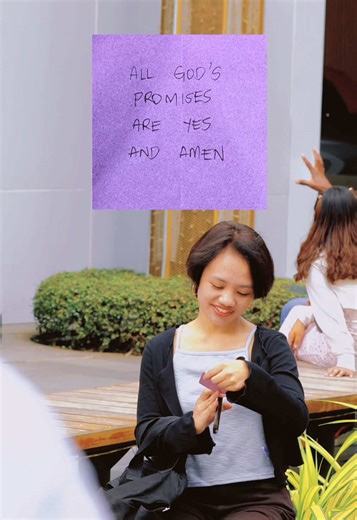 ALL GOD'S
PROMISES
ARE YES
AND AMEN